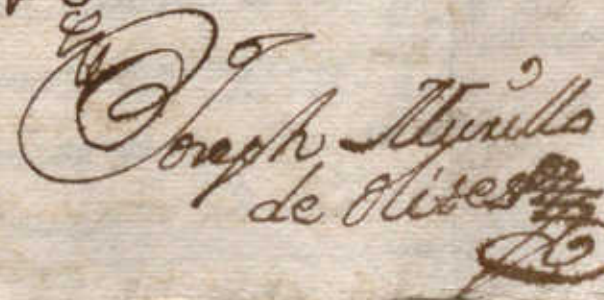 Joseph Murillo
de Olises